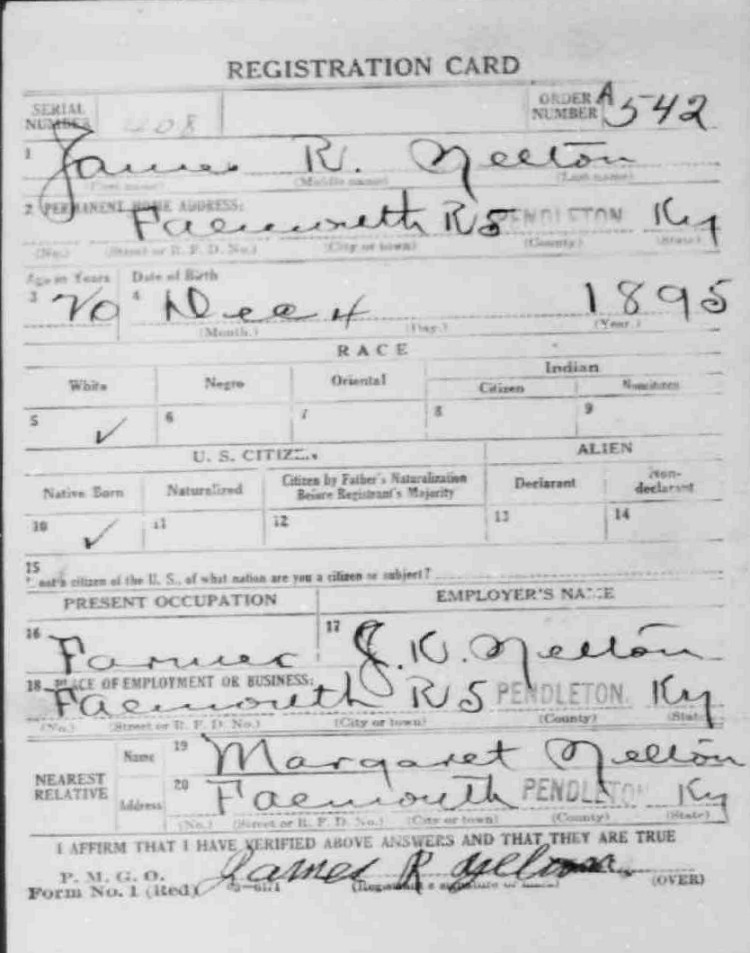 REGISTRATION CARD
SERIAL NUMBER 208 ORDER NUMBER A 542
1 James R. Nelton
(First name) (Middle name) (Last name)
2 PERMANENT HOME ADDRESS:
Falmouth R 5 PENDLETON Ky
(No.) (Street or R. F. D. No.) (City or town) (County) (State)
Age in Years Date of Birth
3 20 4 Dec 4 1895
(Month.) (Day.) (Year.)
RACE
White Negro Oriental Indian
Citizen Noncitizen
5 ✓ 6 7 8 9
U. S. CITIZEN ALIEN
Native Born Naturalized Citizen by Father's Naturalization Before Registrant's Majority Declarant Non-declarant
10 ✓ 11 12 13 14
15
not a citizen of the U. S., of what nation are you a citizen or subject?
PRESENT OCCUPATION EMPLOYER'S NAME
16 Farmer 17 J. K. Nelton
18 PLACE OF EMPLOYMENT OR BUSINESS:
Falmouth R 5 PENDLETON. Ky
(No.) (Street or R. F. D. No.) (City or town) (County) (State)
NEAREST RELATIVE
Name 19 Margaret Nelton
Address 20 Falmouth PENDLETON Ky
(No.) (Street or R. F. D. No.) (City or town) (County) (State)
I AFFIRM THAT I HAVE VERIFIED ABOVE ANSWERS AND THAT THEY ARE TRUE
P. M. G. O.
Form No. 1 (Red) James R Nelton
(Registrant's signature or mark) (OVER)